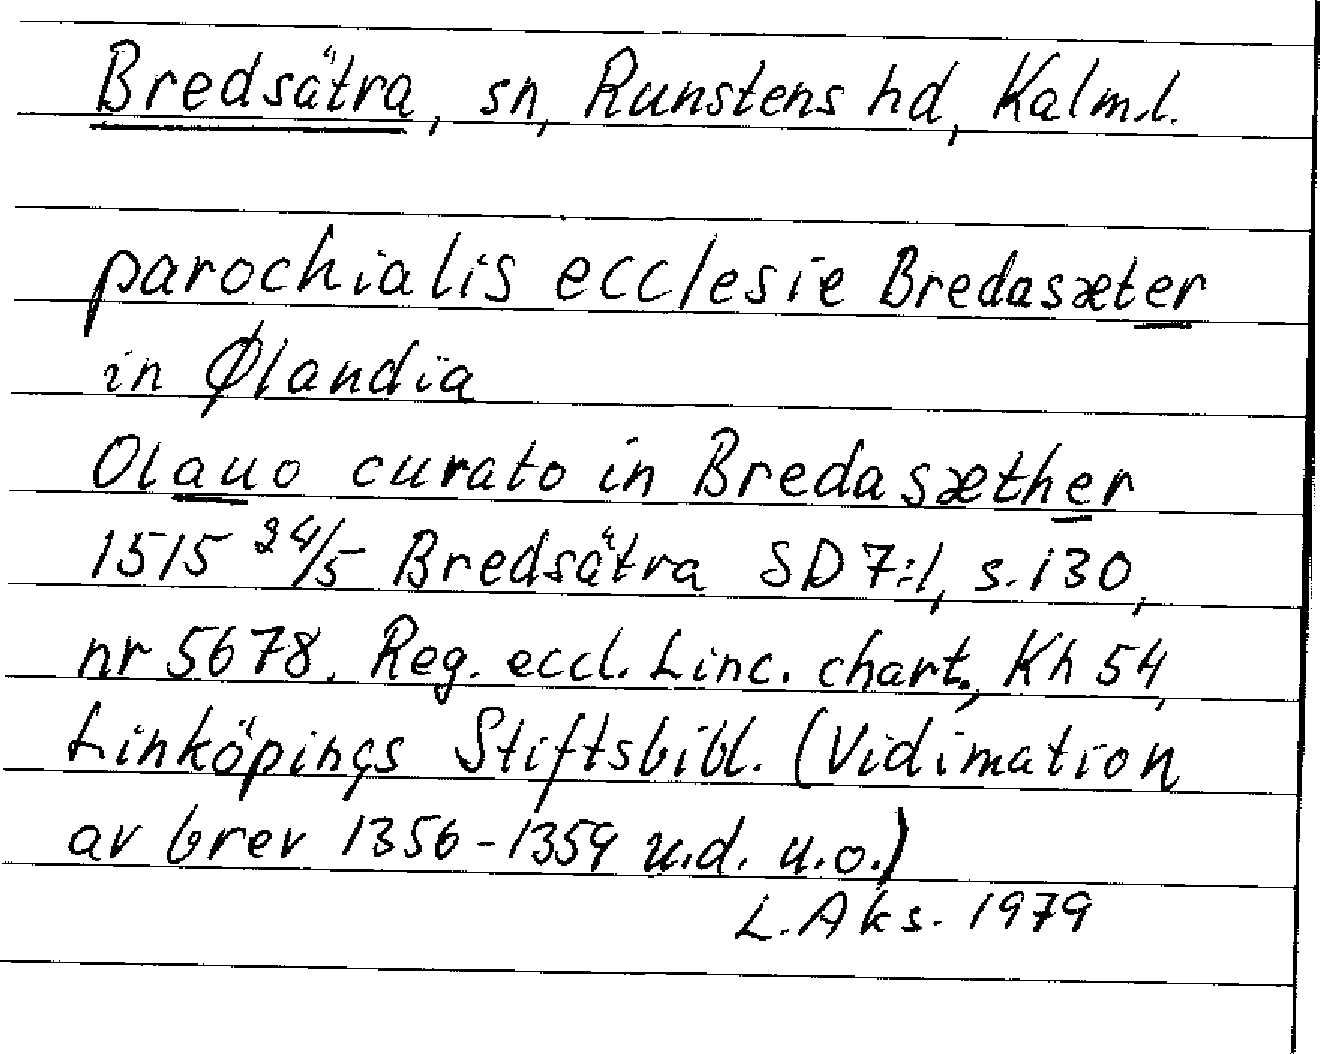 Bredsätra, sn, Runstens hd, Kalm.l.
parochialis ecclesie Bredasæter
in Ølandia
Olauo curato in Bredasæther
1515 24/5 Bredsätra SD 7:1, s. 130,
nr 5678. Reg. eccl. Linc. chart., Kh 54,
Linköpings Stiftsbibl. (Vidimation
av brev 1356-1359 u.d. u.o.)
L. Aks. 1979